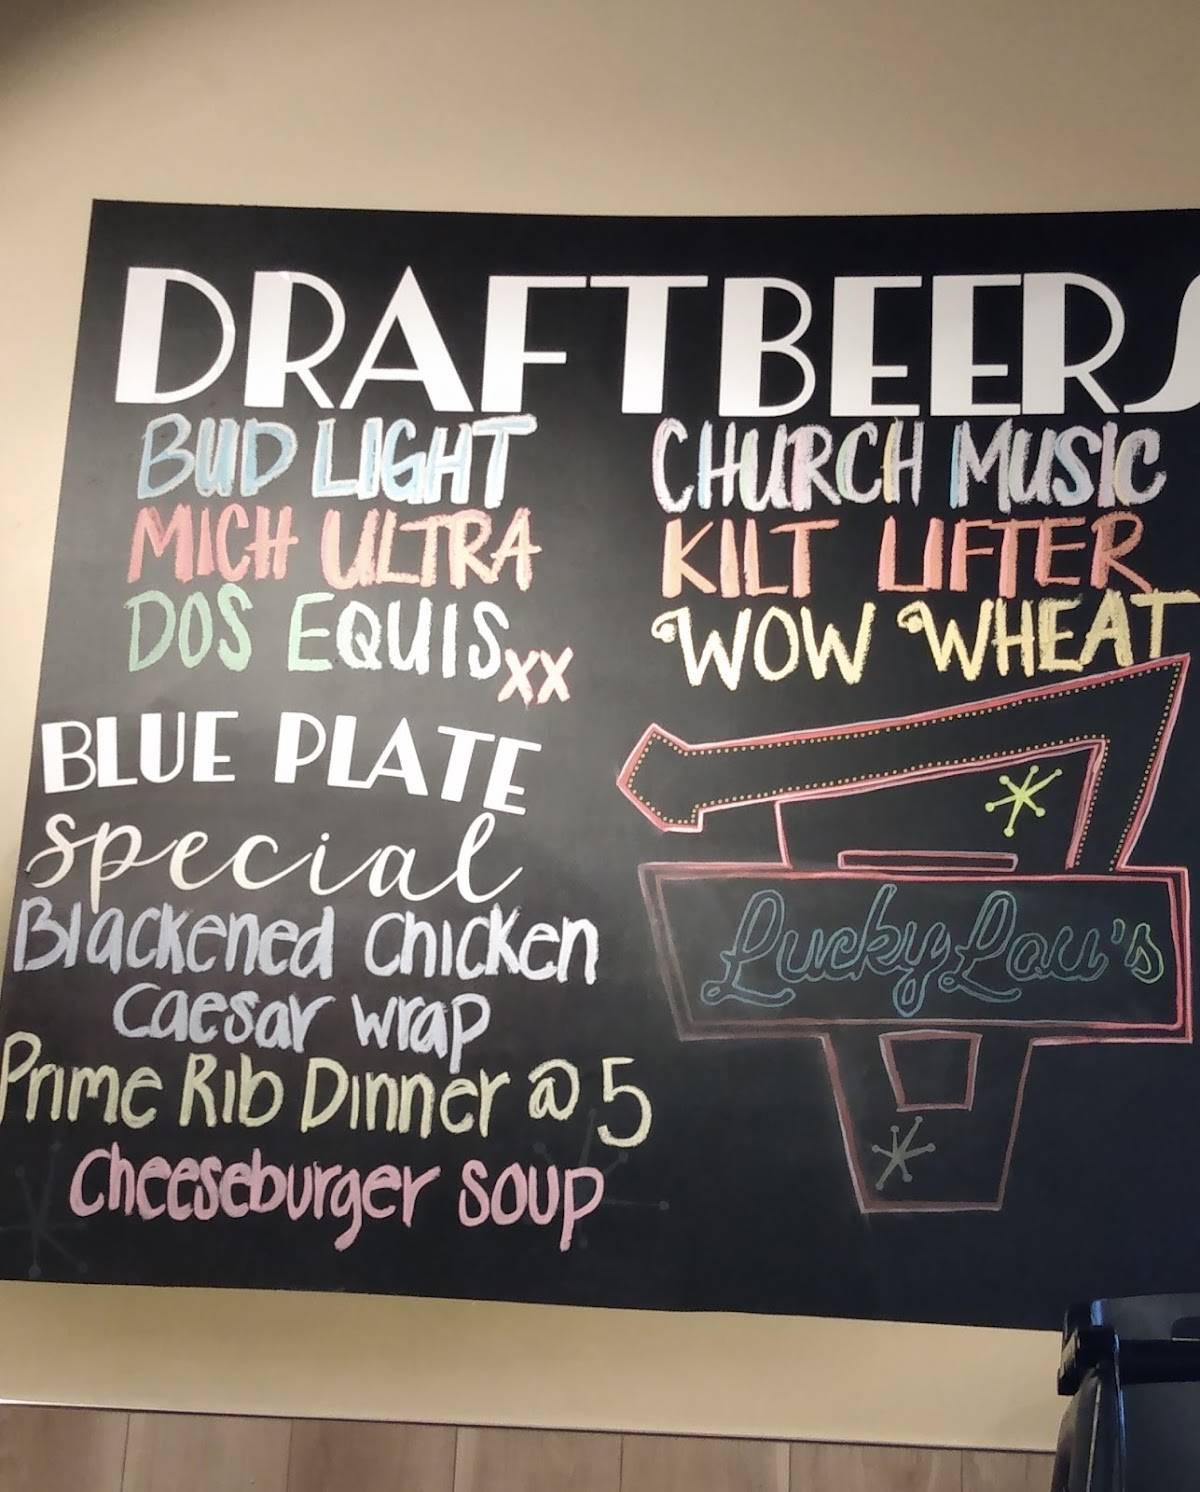 DRAFT BEERS
BUD LIGHT
MICH ULTRA
DOS EQUIS XX
CHURCH MUSIC
KILT LIFTER
WOW WHEAT
BLUE PLATE
special
Blackened Chicken
Caesar wrap
Prime Rib Dinner @ 5
Cheeseburger Soup
Lucky Lou's